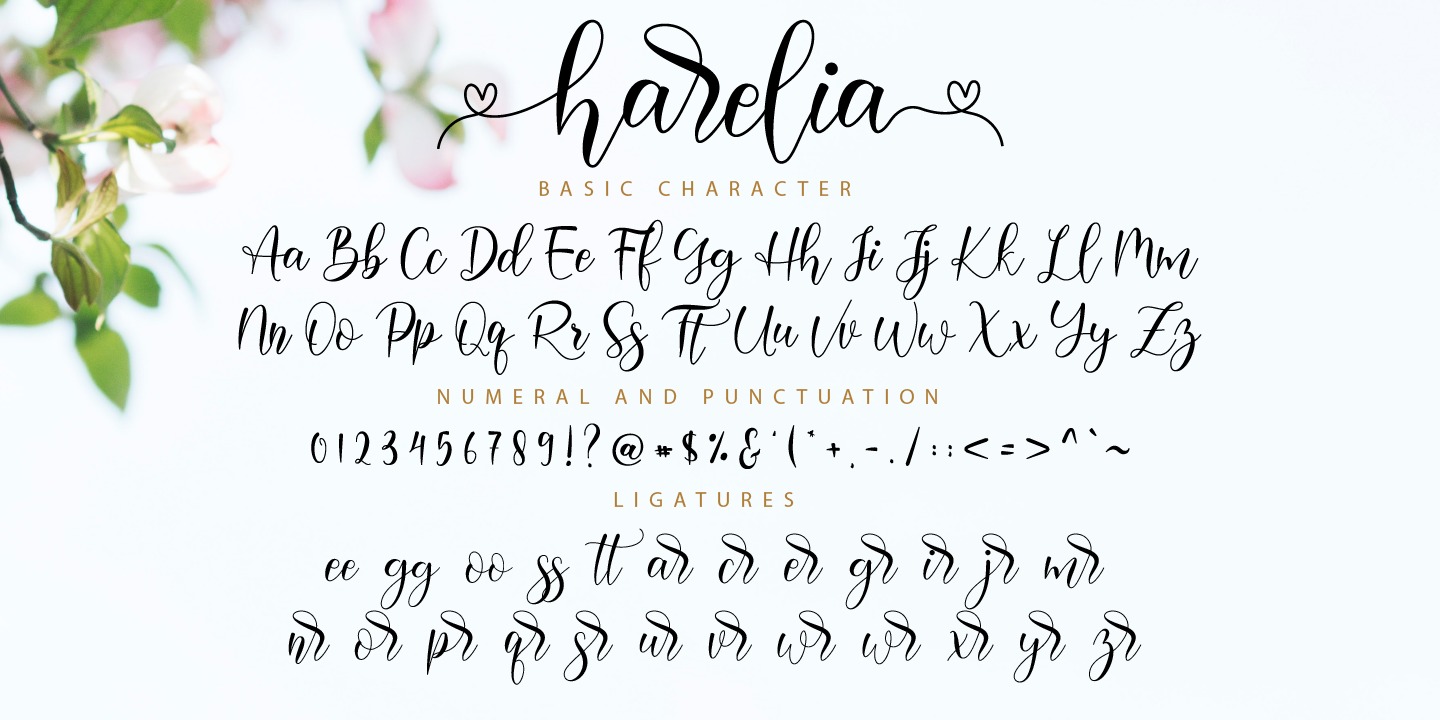 harelia
BASIC CHARACTER
Aa Bb Cc Dd Ee Ff Gg Hh Ii Jj Kk Ll Mm
Nn Oo Pp Qq Rr Ss Tt Uu Vv Ww Xx Yy Zz
NUMERAL AND PUNCTUATION
0 1 2 3 4 5 6 7 8 9 ! ? @ # $ % & ' ( * + , - . / : : < = > ^ ` ~
LIGATURES
ee gg oo ss tt ar cr er gr ir jr mr
nr or pr qr sr ur vr wr wr xr yr zr